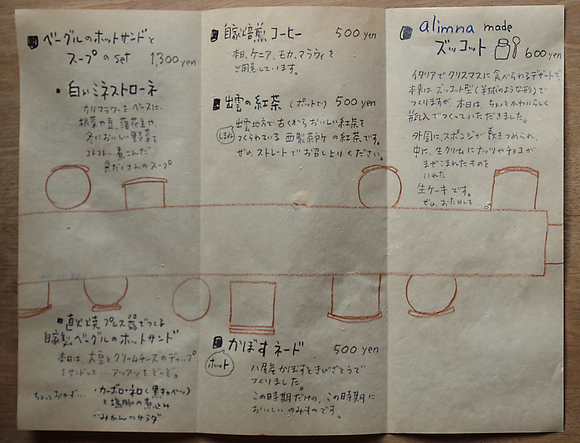 ベーグルのホットサンドと
スープの set 1,300 yen
・白いミネストローネ
カリフラワーをベースに、
根菜や豆、
冬においしい野菜を
コトコト、煮こんだ
具だくさんのスープ
直火焼プレス器でつくる
自家製ベーグルのホットサンド
本日は、大豆とクリームチーズのディップ
をサンドして、アツアツを どーぞ。
ちょっとおかず…
・カーボロ・ネロ(黒キャベツ)
と塩豚の煮込み
・みかんのサラダ
自家焙煎 コーヒー 500 yen
本日、ケニア、モカ、マラウィを
ご用意しています。
出雲の紅茶 (ポットで) 500 yen
出雲地方で古くからおいしい紅茶を
しまね つくられている 西製茶所 の紅茶です。
ぜひ、ストレートでお召し上りください。
かぼすネード 500 yen
ホット
かぼすときびざとうで
つくりました。
この時期だけの、この時期に
おいしいのみものです。
alimna made
ズッコット 600 yen
イタリアでクリスマスに食べられるデザートで
本来は ズッコット型(半球のようなあり)で
つくりますが、本日は、ちょっとかわいらしく
瓶入でつくっていただきました。
外周に、スポンジが敷きつめられ、
中に、生クリームにナッツやチョコが
まぜこまれたものを
いれた
生ケーキです。
ぜひ、おためしを